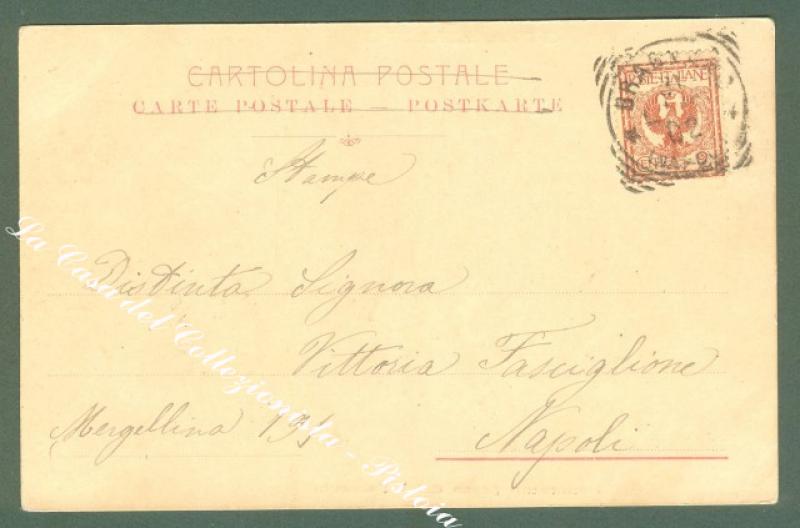 CARTOLINA POSTALE
CARTE POSTALE — POSTKARTE
POSTE ITALIANE
02
Stampe
Distinta Signora
Vittoria Fasciglione
Mergellina
Napoli
La Casa del Collezionista - Pistoia